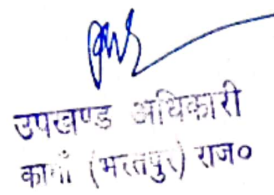 उपखण्ड अधिकारी
कामाँ (भरतपुर) राज०